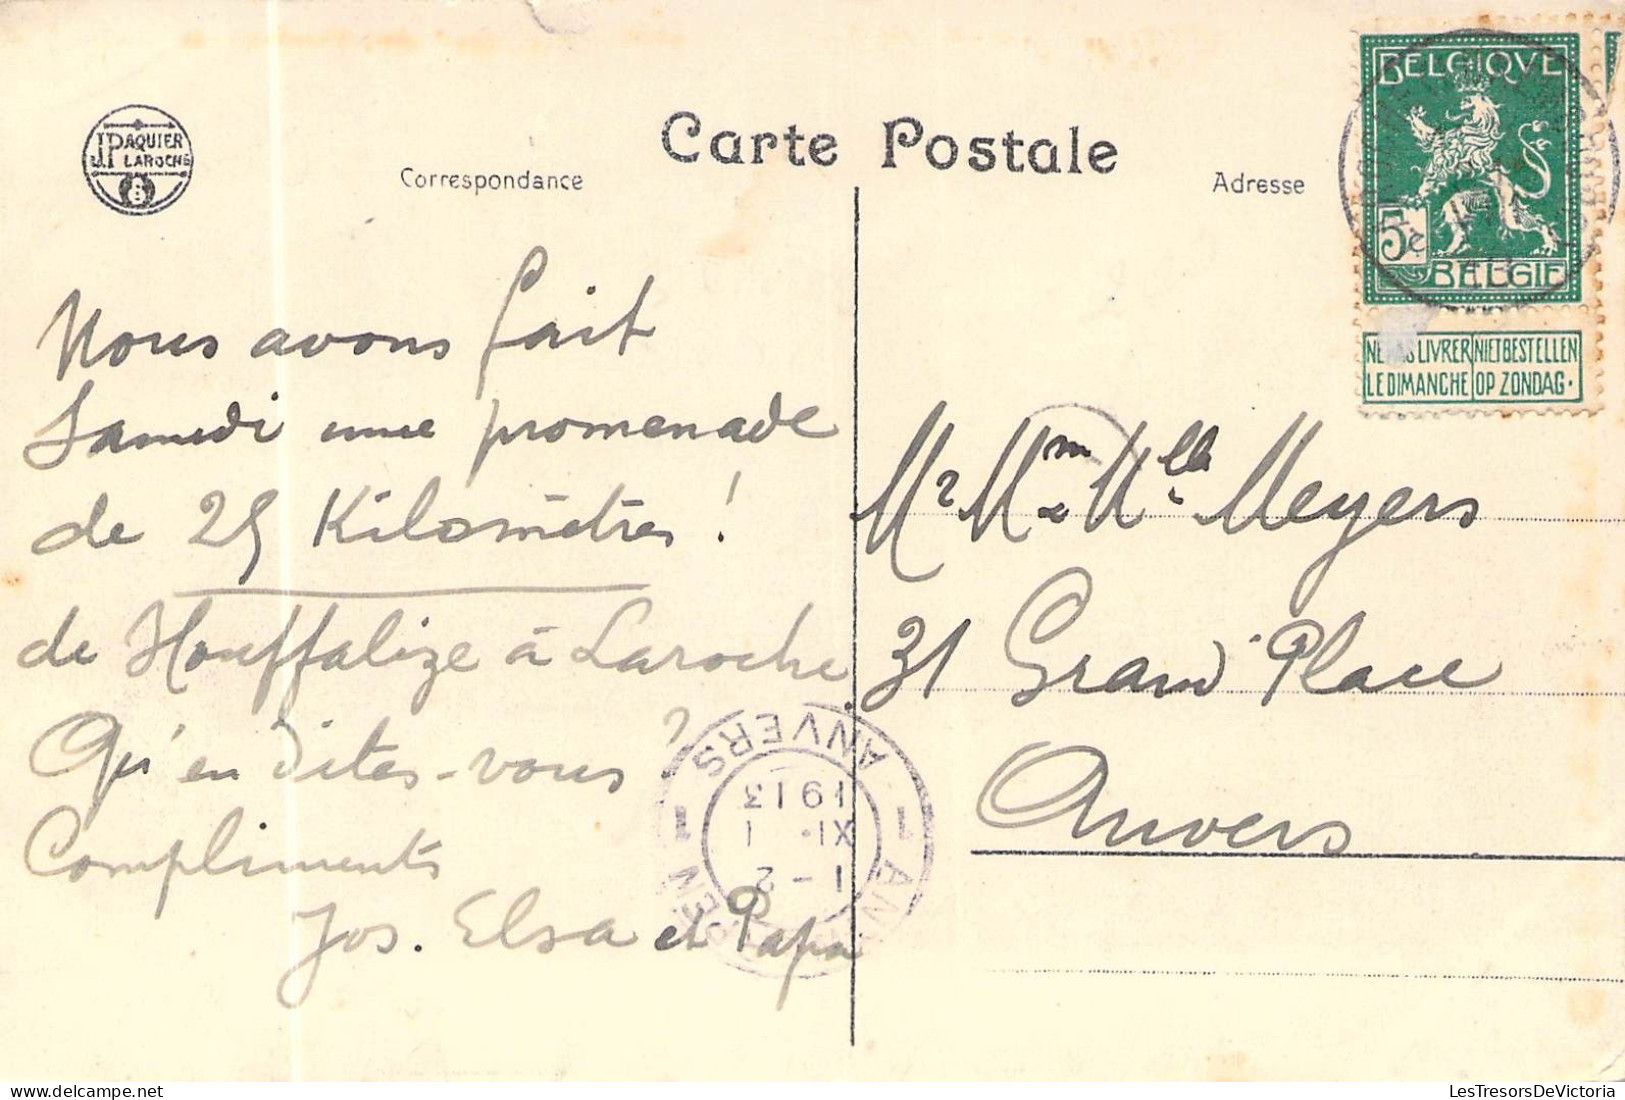 J. PAQUIER
LAROCHE
Carte Postale
Correspondance
Adresse
BELGIQVE
5c
BELGIË
NE PAS LIVRER LE DIMANCHE
NIET BESTELLEN OP ZONDAG.
Nous avons fait
Samedi une promenade
de 25 Kilomètres !
de Houffalize à Laroche
Qu'en dites-vous ?
Compliments
Jos. Elsa et Papa
Mr Mme Mlle Meyers
31 Grand Place
Anvers
ANVERS
1913
XI. 1
1 - 2
LesTresorsDeVictoria